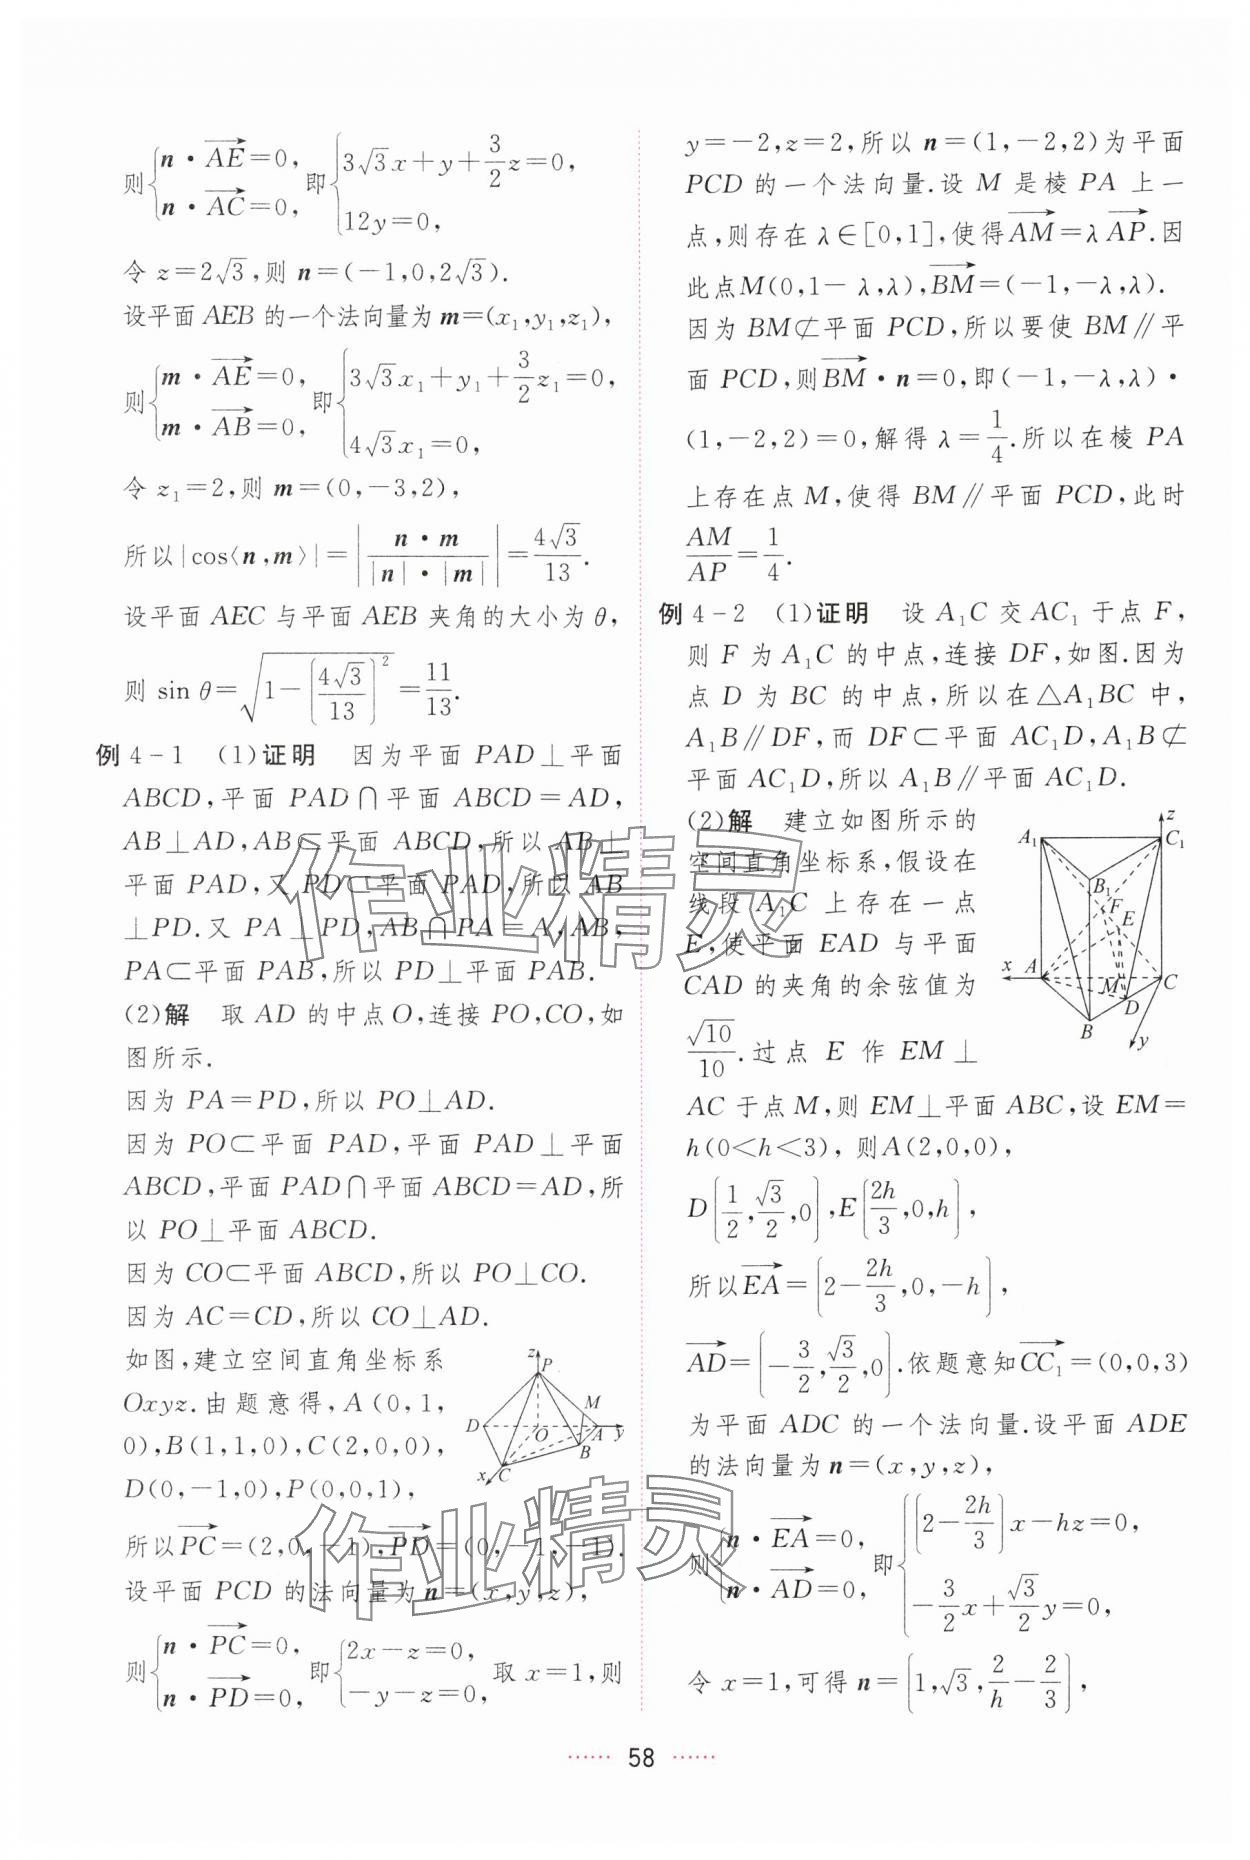 则{n·AE⃗=0, n·AC⃗=0, 即{3√3x+y+3/2z=0, 12y=0,
令 z=2√3,则 n=(-1,0,2√3).
设平面 AEB 的一个法向量为 m=(x₁,y₁,z₁),
则{m·AE⃗=0, m·AB⃗=0, 即{3√3x₁+y₁+3/2z₁=0, 4√3x₁=0,
令 z₁=2,则 m=(0,-3,2),
所以|cos⟨n,m⟩|=|n·m/(|n|·|m|)|=4√3/13.
设平面 AEC 与平面 AEB 夹角的大小为 θ,
则 sin θ=√(1-(4√3/13)²)=11/13.
例 4-1 (1)证明 因为平面 PAD⊥平面
ABCD,平面 PAD∩平面 ABCD=AD,
AB⊥AD,AB⊂平面 ABCD,所以 AB⊥
平面 PAD,又 PD⊂平面 PAD,所以 AB
⊥PD.又 PA⊥PD,AB∩PA=A,AB,
PA⊂平面 PAB,所以 PD⊥平面 PAB.
(2)解 取 AD 的中点O,连接 PO,CO,如
图所示.
因为 PA=PD,所以 PO⊥AD.
因为 PO⊂平面 PAD,平面 PAD⊥平面
ABCD,平面 PAD∩平面 ABCD=AD,所
以 PO⊥平面 ABCD.
因为 CO⊂平面 ABCD,所以 PO⊥CO.
因为 AC=CD,所以 CO⊥AD.
如图,建立空间直角坐标系
Oxyz.由题意得,A(0,1,
0),B(1,1,0),C(2,0,0),
D(0,-1,0),P(0,0,1),
z P M D O A y B x C
所以PC⃗=(2,0,-1),PD⃗=(0,-1,-1).
设平面 PCD 的法向量为 n=(x,y,z),
则{n·PC⃗=0, n·PD⃗=0, 即{2x-z=0, -y-z=0, 取 x=1,则
y=-2,z=2,所以 n=(1,-2,2)为平面
PCD 的一个法向量.设 M 是棱 PA 上一
点,则存在 λ∈[0,1],使得AM⃗=λAP⃗.因
此点M(0,1-λ,λ),BM⃗=(-1,-λ,λ).
因为 BM⊄平面 PCD,所以要使 BM∥平
面 PCD,则BM⃗·n=0,即(-1,-λ,λ)·
(1,-2,2)=0,解得 λ=1/4.所以在棱 PA
上存在点 M,使得 BM∥平面 PCD,此时
AM/AP=1/4.
例 4-2 (1)证明 设 A₁C 交 AC₁ 于点 F,
则 F 为 A₁C 的中点,连接 DF,如图.因为
点 D 为 BC 的中点,所以在△A₁BC 中,
A₁B∥DF,而 DF⊂平面 AC₁D,A₁B⊄
平面 AC₁D,所以 A₁B∥平面 AC₁D.
(2)解 建立如图所示的
空间直角坐标系,假设在
线段 A₁C 上存在一点
E,使平面 EAD 与平面
CAD 的夹角的余弦值为
√10/10.过点 E 作 EM⊥
z A₁ C₁ B₁ F E x A M C D B y
AC 于点 M,则 EM⊥平面 ABC,设 EM=
h(0<h<3),则A(2,0,0),
D(1/2,√3/2,0),E(2h/3,0,h),
所以EA⃗=(2-2h/3,0,-h),
AD⃗=(-3/2,√3/2,0).依题意知CC₁⃗=(0,0,3)
为平面 ADC 的一个法向量.设平面 ADE
的法向量为 n=(x,y,z),
则{n·EA⃗=0, n·AD⃗=0, 即{(2-2h/3)x-hz=0, -3/2x+√3/2y=0,
令 x=1,可得 n=(1,√3,2/h-2/3),
58
作业精灵
作业精灵